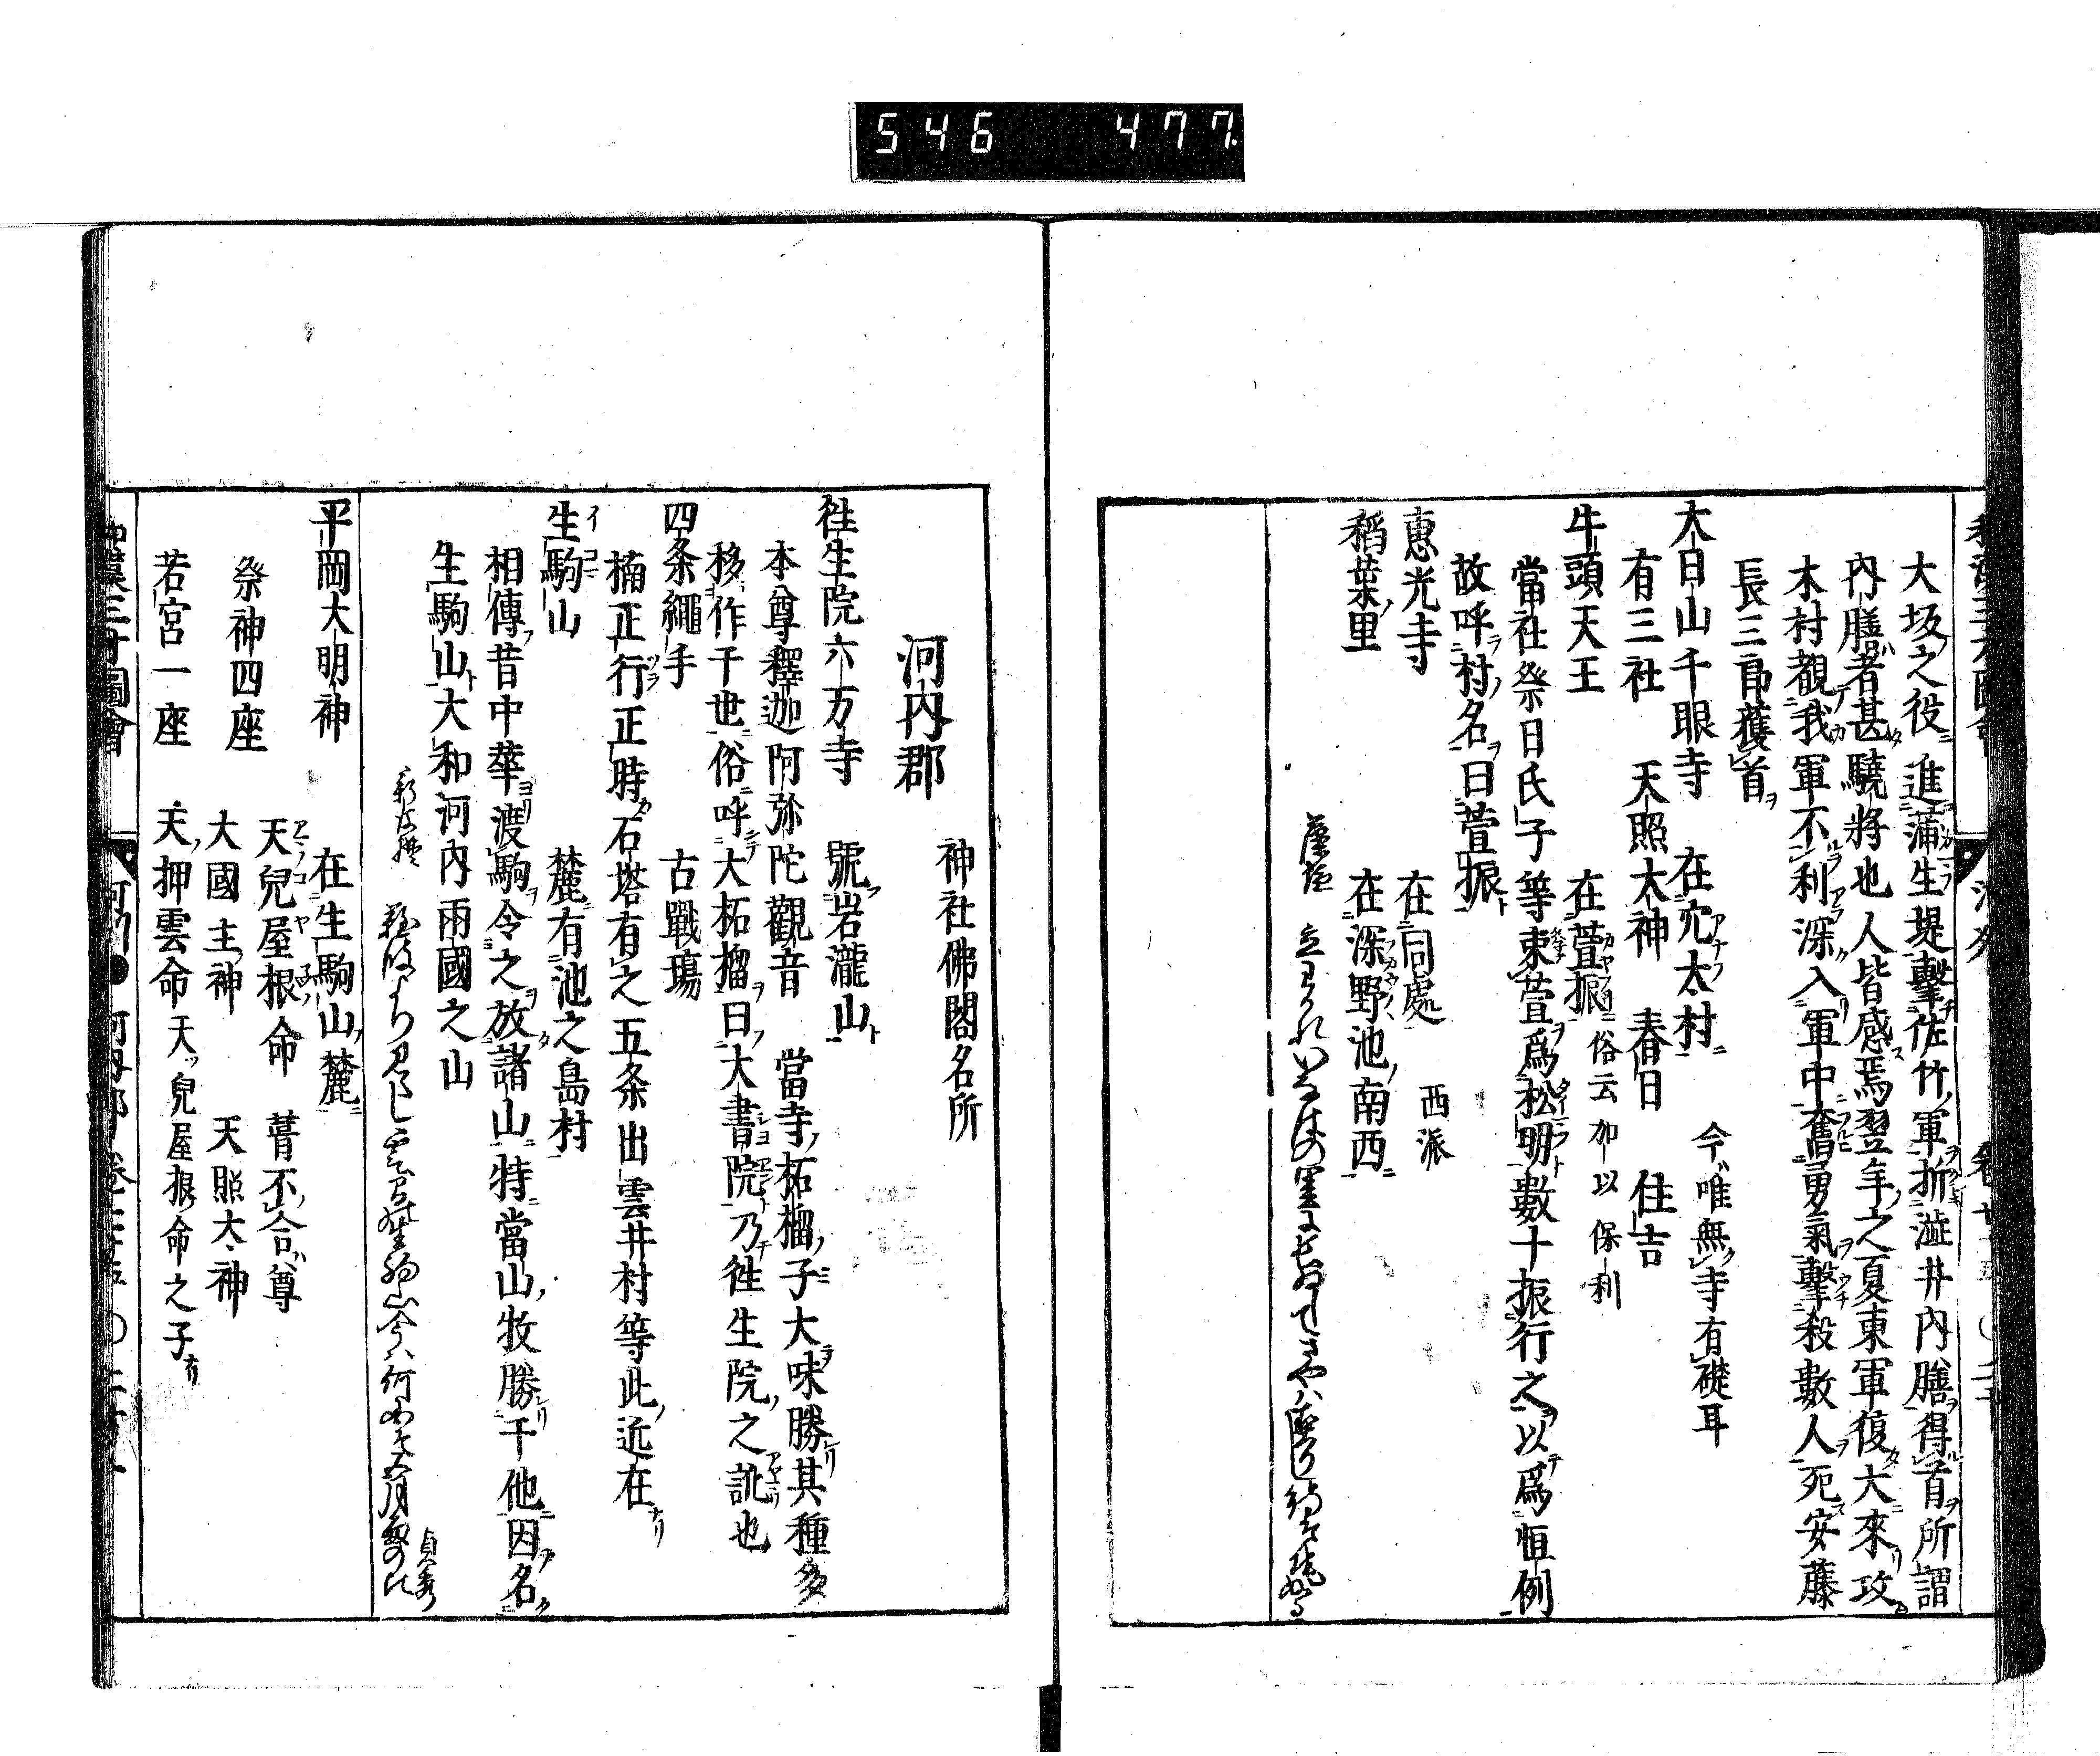 546 477
大坂之役進蒲生堤擊佐竹軍折澁井内膳得首所謂
内膳者甚驍將也人皆感焉翌年之夏東軍復大來攻
木村覩我軍不利深入軍中奮勇氣擊殺數人死安藤
長三郎獲首
大日山千眼寺 在穴太村 今唯無寺有礎耳
有三社 天照太神 春日 住吉
牛頭天王 在萱振 俗云加以保利
當社祭日氏子等束萱爲松明數十振行之以爲恒例
故呼村名曰萱振
惠光寺 在同處 西派
稻葉里 在深野池南西
河内郡 神社佛閣名所
徃生院六万寺 號岩瀧山
本尊釋迦阿弥陀觀音 當寺柘榴子大味勝其種多
移作于世俗呼大柘榴曰大書院乃徃生院之訛也
四条繩手 古戰塲
楠正行正時石塔有之五条出雲井村等此近在
生駒山 麓有池之島村
相傳昔中華渡駒令之放諸山特當山牧勝于他因名
生駒山大和河内兩國之山
貞秀
平岡大明神 在生駒山麓
祭神四座 天兒屋根命 葺不合尊
大國主神 天照大神
若宮一座 天押雲命天兒屋根命之子
和漢三才圖會 河州 河内郡